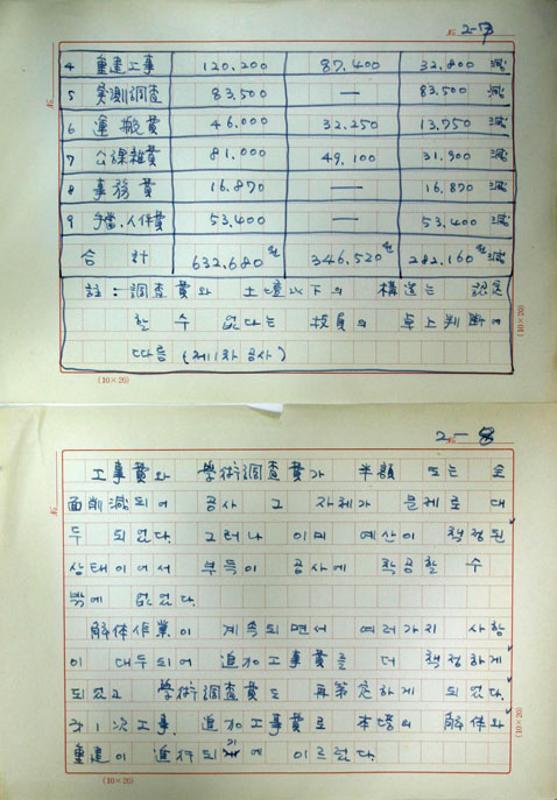 No. 2-7
4 重建工事 120.200 87.400 32.800 減
5 実測調査 83.500 — 83.500 減
6 運搬費 46.000 32.250 13.750 減
7 公課雜費 81.000 49.100 31.900 減
8 事務費 16.870 — 16.870 減
9 手當.人件費 53.400 — 53.400 減
合計 632.680원 346.520원 282.160원 減
註: 調査費와 土壇以下의 構造는 認定
할 수 없다는 技員의 卓上判断에
따름 (제1차 공사)
(10×20)
(10×20)
No.
2-8
No.
工事費와 学術調査費가 半額 또는 全
面削減되어 공사 그 자체가 문제로 대
두 되었다. 그러나 이미 예산이 책정된
상태이어서 부득이 공사에 착공할 수
밖에 없었다.
解体作業이 계속되면서 여러가지 사항
이 대두되어 追加工事費를 더 책정하게
되었고 学術調査費도 再策定하게 되었다.
제1次工事. 追加工事費로 本塔의 解体와
重建이 進行되기에 이르렀다.
(10×20)
(10×20)